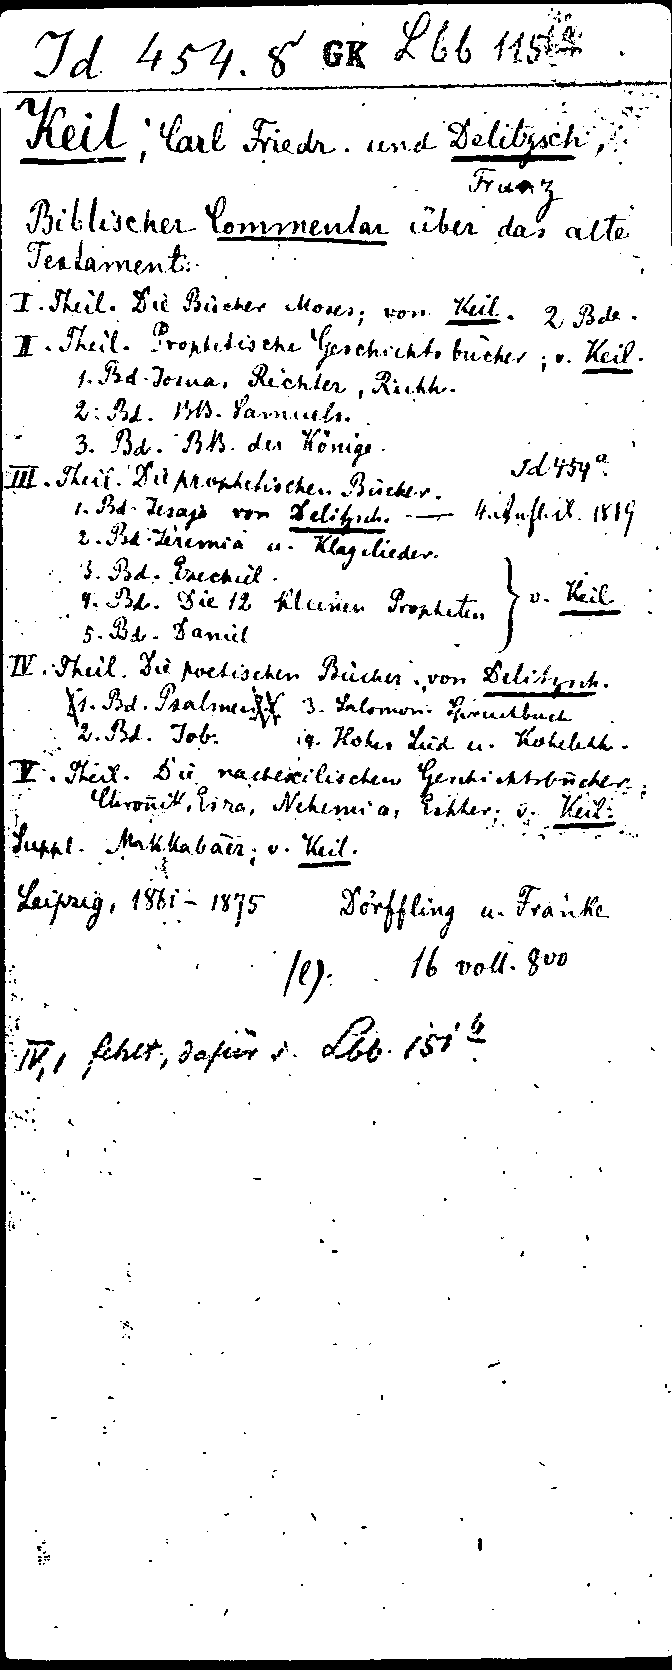 Id 454. 8 GK Lbb 115
Keil, Carl Friedr. und Delitzsch,
Franz
Biblischer Commentar über das alte
Testament:
I. Theil. Die Bücher Moses; von Keil. 2 Bde.
II. Theil. Prophetische Geschichtsbücher; v. Keil.
1. Bd. Josua, Richter, Ruth.
2. Bd. BB. Samuels.
3. Bd. BB. der Könige.
III. Theil. Die prophetischen Bücher. Id 454a.
1. Bd. Jesaja von Delitzsch. — 4. Aufl.
2. Bd. Jeremia u. Klagelieder.
3. Bd. Ezechiel.
4. Bd. Die 12 kleinen Propheten } v. Keil
5. Bd. Daniel
IV. Theil. Die poetischen Bücher; von Delitzsch.
1. Bd. Psalmen 3. Salomon. Spruchbuch
2. Bd. Job. 4. Hohes Lied u. Koheleth.
V. Theil. Die nachexilischen Geschichtsbücher:
Chronik, Esra, Nehemia, Esther; v. Keil.
Suppl. Makkabäer; v. Keil.
Leipzig, 1861-1875 Dörffling u. Franke
(l). 16 voll. 8vo
IV,1 fehlt, dafür s. Lbb. 151b